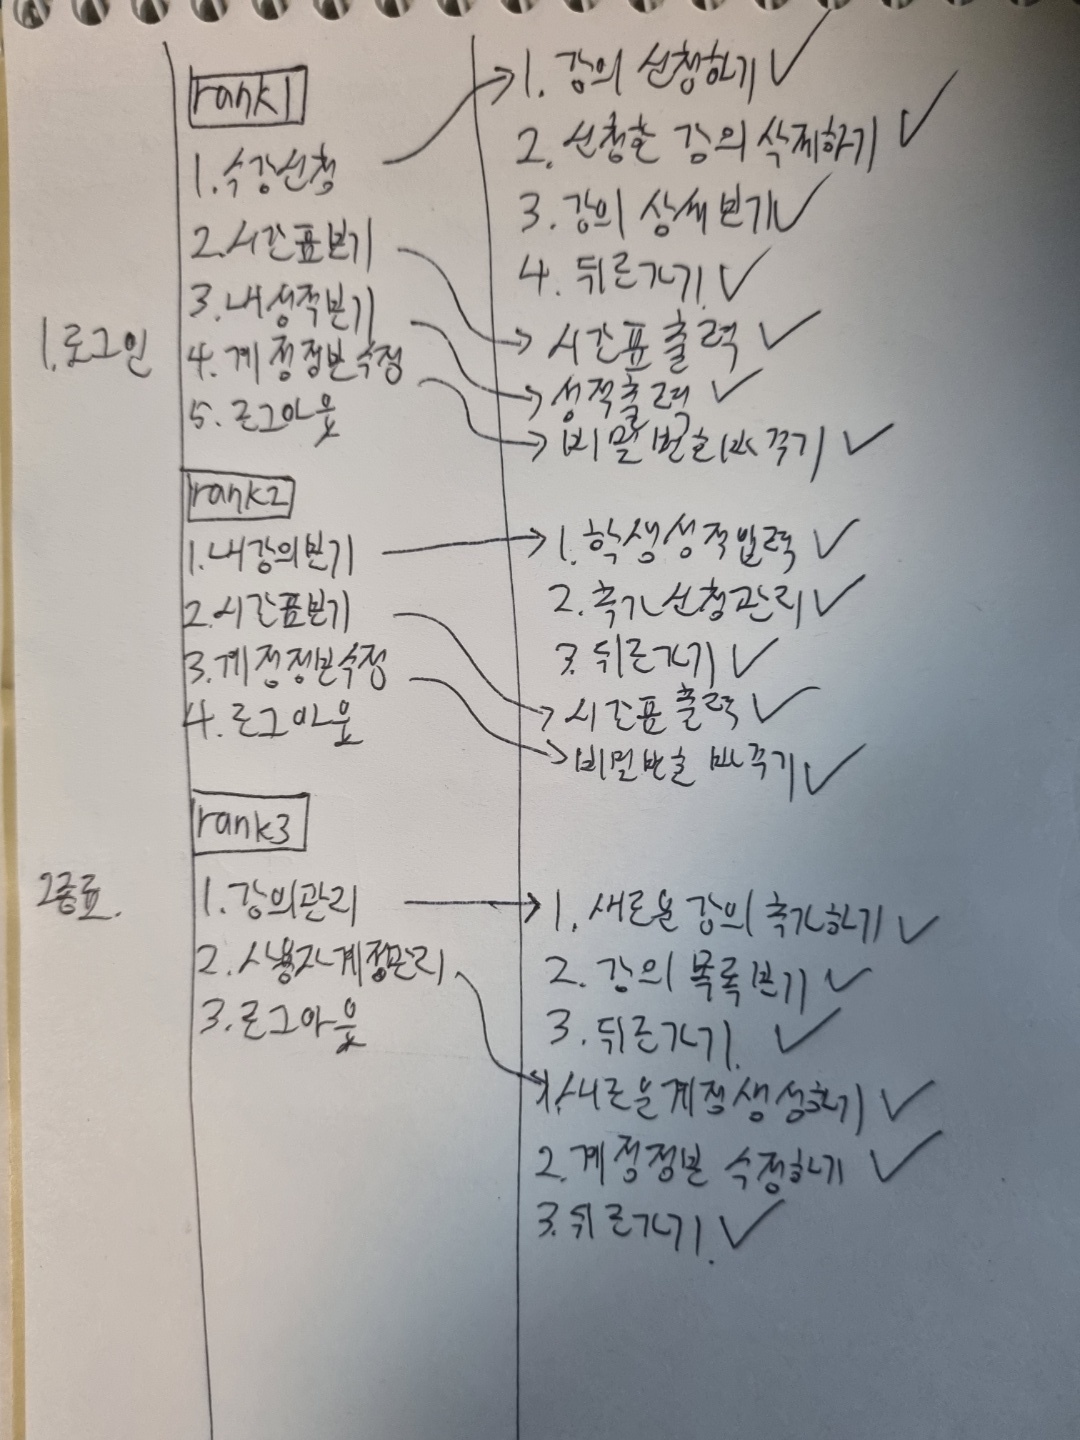 1. 로그인
2 종료.
rank1
1. 수강신청
2. 시간표보기
3. 내성적보기
4. 계정정보수정
5. 로그아웃
rank2
1. 내강의보기
2. 시간표보기
3. 계정정보수정
4. 로그아웃
rank3
1. 강의관리
2. 사용자계정관리
3. 로그아웃
1. 강의 신청하기
2. 신청한 강의 삭제하기
3. 강의 상세보기
4. 뒤로가기
시간표 출력
성적출력
비밀번호바꾸기
1. 학생성적입력
2. 추가신청관리
3. 뒤로가기
시간표 출력
비밀번호 바꾸기
1. 새로운 강의 추가하기
2. 강의 목록보기
3. 뒤로가기.
1. 새로운계정생성하기
2. 계정정보 수정하기
3. 뒤로가기.